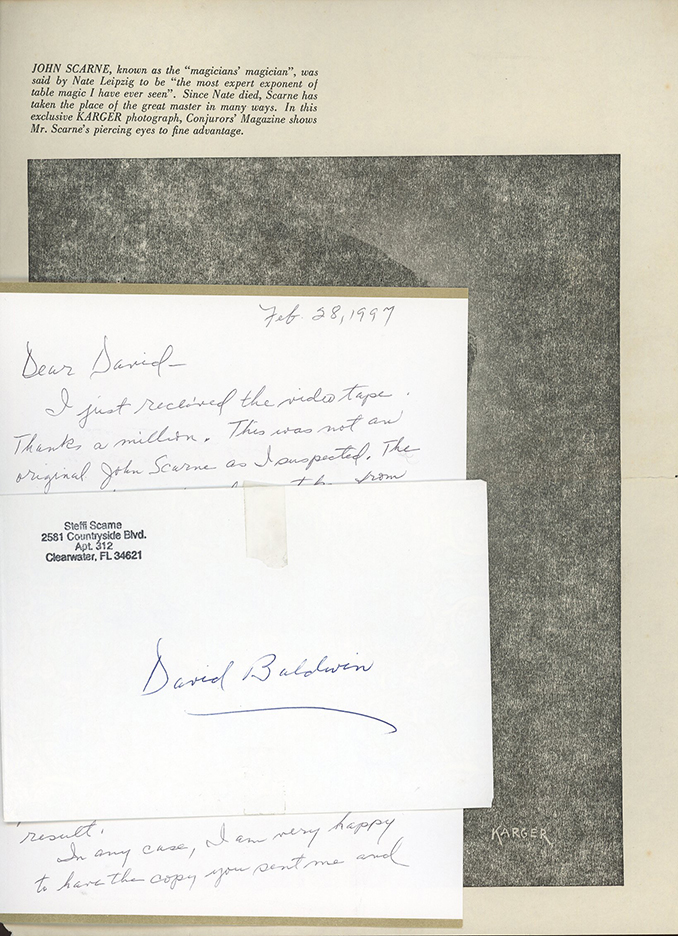 JOHN SCARNE, known as the "magicians' magician", was
said by Nate Leipzig to be "the most expert exponent of
table magic I have ever seen". Since Nate died, Scarne has
taken the place of the great master in many ways. In this
exclusive KARGER photograph, Conjurors' Magazine shows
Mr. Scarne's piercing eyes to fine advantage.
Feb. 28, 1997
Dear David-
I just received the video tape.
Thanks a million. This was not an
original John Scarne as I suspected. The
from
Steffi Scarne
2581 Countryside Blvd.
Apt. 312
Clearwater, FL 34621
David Baldwin
result.
In any case, I am very happy
to have the copy you sent me and
KARGER